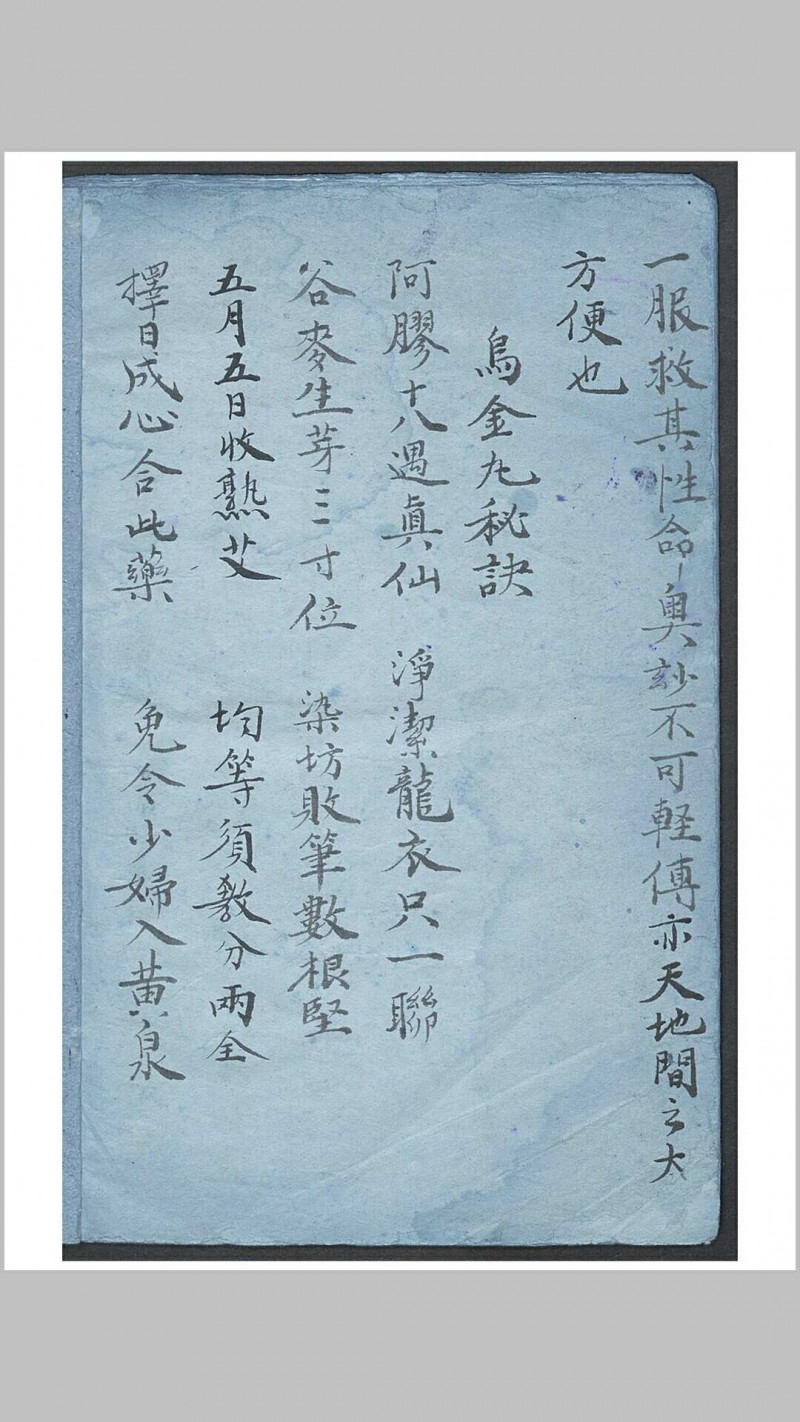 一服救其性命奥玅不可軽傳亦天地間之大
方便也
烏金丸秘訣
阿膠十八遇眞仙　淨潔龍衣只一聯
谷麥生芽三寸位　染坊敗筆數根堅
五月五日收熟艾　均等須教分兩全
擇日成心合此藥　免令少婦入黄泉